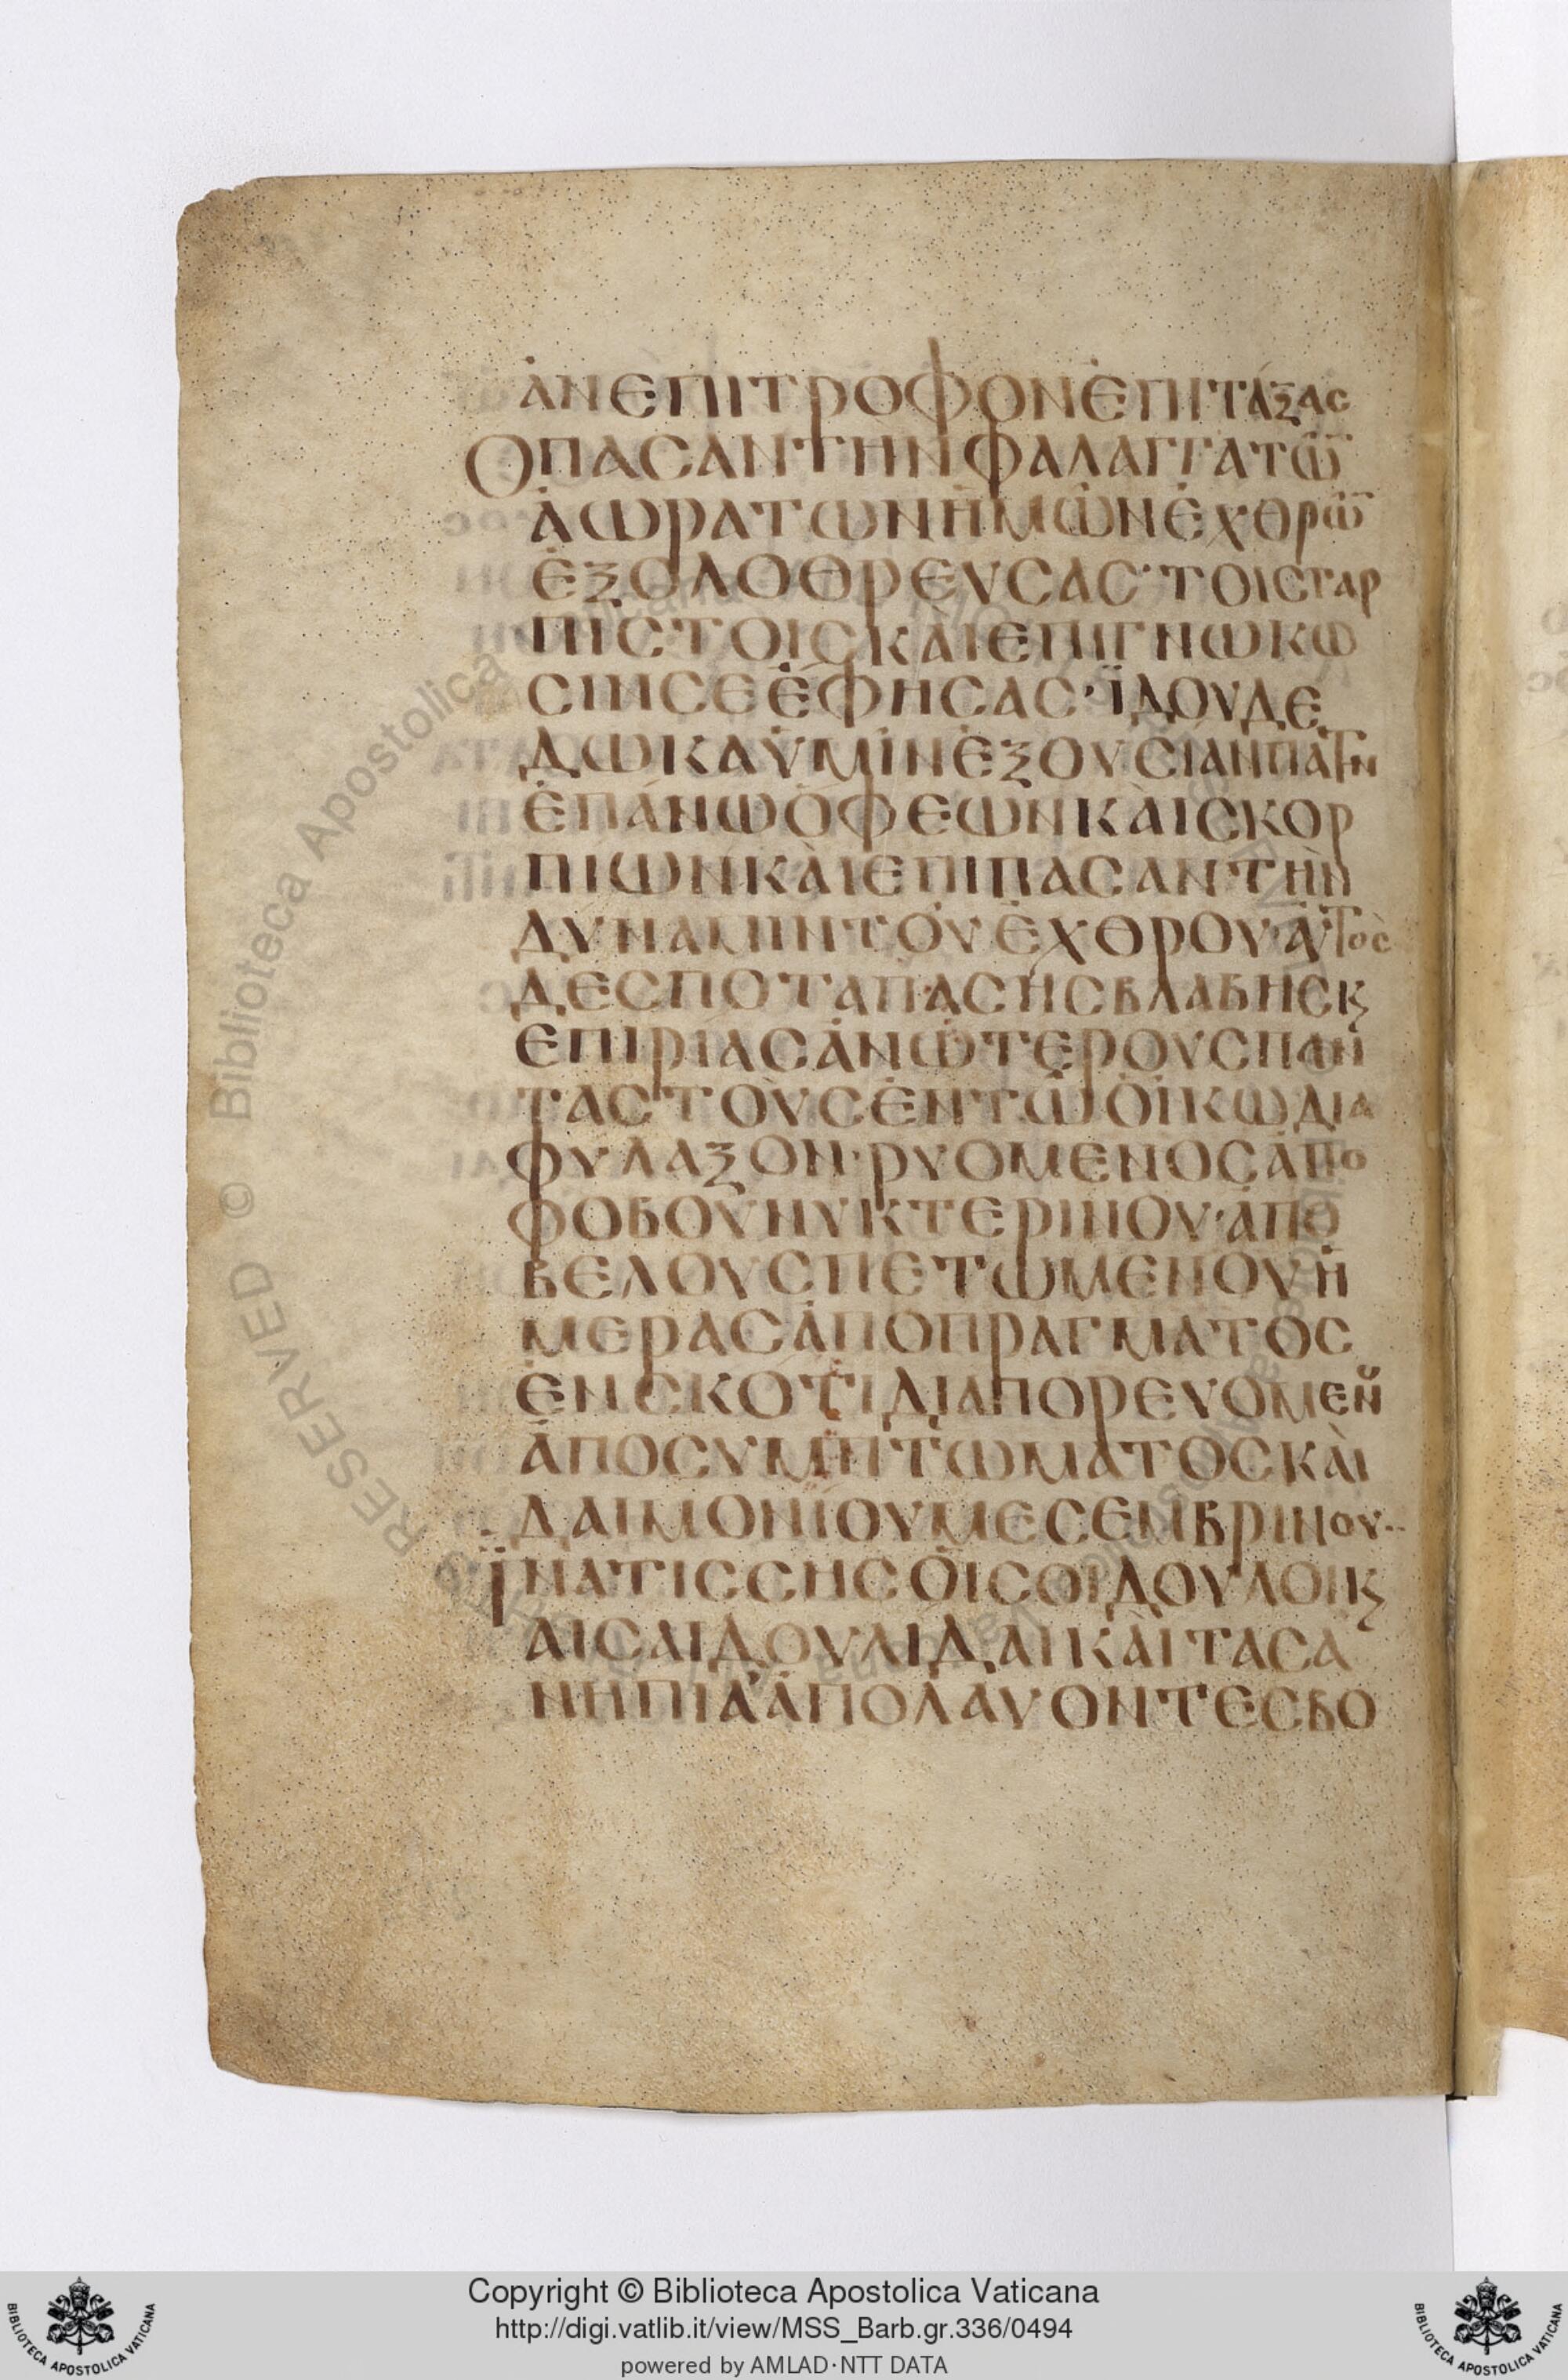 ἈΝΕΠΙΤΡΟΦΟΝἘΠΙΤΑΞΑС
ΟΠΑСΑΝΤΗΝΦΑΛΑΓΓΑΤῶ̅
ἈωΡΑΤωΝἩΜῶΝἘΧΘΡῶ̅
ἘΞΟΛΟΘΡΕΥСΑС·ΤΟΙСΓΑΡ
ΠΙСΤΟΙСΚΑῚΕΠΙΓΝωΚω
СΙΝСΕἘΦΗСΑС·ΪΔΟΥΔΕ
ΔωΚΑὙΜῙΝἘΞΟΥСΙΑΝΠΑΤΗΝ
ἘΠΑΝωὈΦΕωΝΚΑῚСΚΟΡ
ΠΙωΝΚΑῚΕΠΙΠΑСΑΝΤῊΝ
ΔΥΝΑΜΙΝΤΟΥἘΧΘΡΟΥ·ΑΥΤΟС
ΔΕСΠΟΤΑΠΑСΗСΒΛΑΒΗСϗ
ΕΠΙΡΙΑСἈΝωΤΕΡΟΥСΠΑΝ
ΤΑСΤΟΥСἘΝΤῶΟἸΚωΔΙΑ
ΦΥΛΑΞΟΝ·ΡΥΟΜΕΝΟСἈΠΟ
ΦΟΒΟΥΝΥΚΤΕΡΙΝΟΥ·ἈΠΟ
ΒΕΛΟΥСΠΕΤωΜΕΝΟΥἩ
ΜΕΡΑСἈΠΟΠΡΑΓΜΑΤΟС
ἘΝСΚΟΤΙΔΙΑΠΟΡΕΥΟΜΕΝ̆
ἈΠΟСΥΜΠΤωΜΑΤΟСΚΑῚ
ΔΑΙΜΟΝΙΟΥΜΕСΕΜΒΡΙΝΟΥ··
ΪΝΑΤΙССΗСΟἹСΟΙΔΟΥΛΟΙϗ
ΑΙСΑΙΔΟΥΛΙΔΑΙΚΑῚΤΑСΑ
ΝΗΠΙΑἈΠΟΛΑΥΟΝΤΕСΒΟ
Copyright © Biblioteca Apostolica Vaticana
http://digi.vatlib.it/view/MSS_Barb.gr.336/0494
powered by AMLAD·NTT DATA
BIBLIOTECA APOSTOLICA VATICANA
BIBLIOTECA APOSTOLICA VATICANA